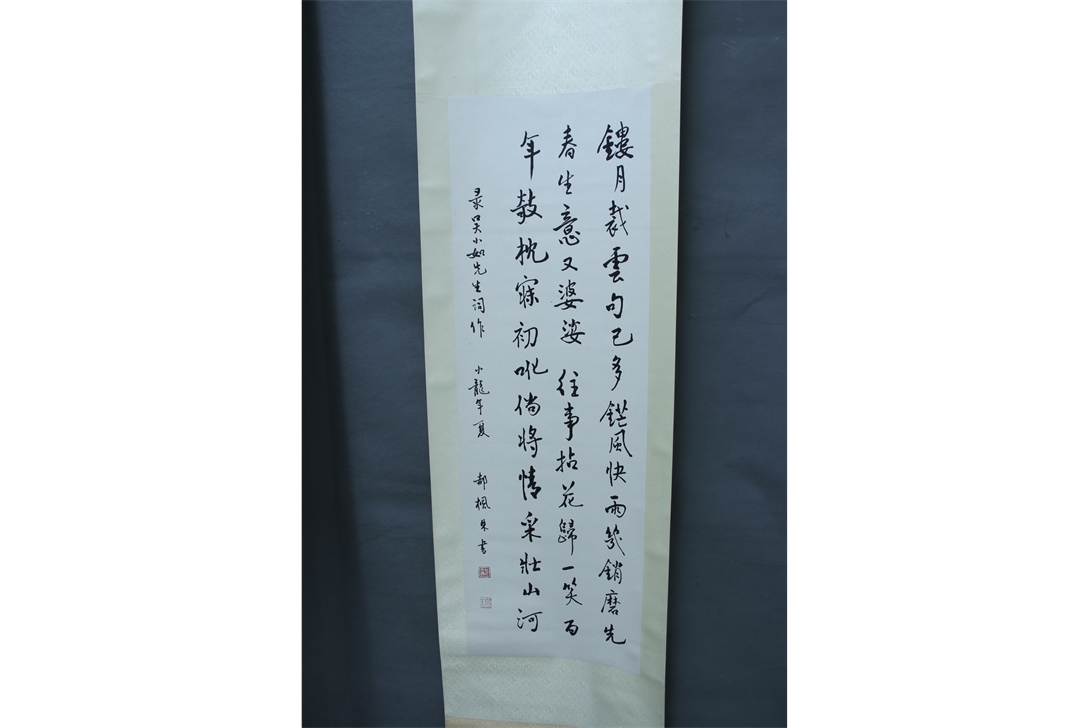 鏤月裁雲句已多鋩風快雨幾銷磨先
春生意又婆娑 往事拈花歸一笑百
年欹枕寐初吪倘將情采壯山河
录吴小如先生词作 小龍年夏 郝楓朱書